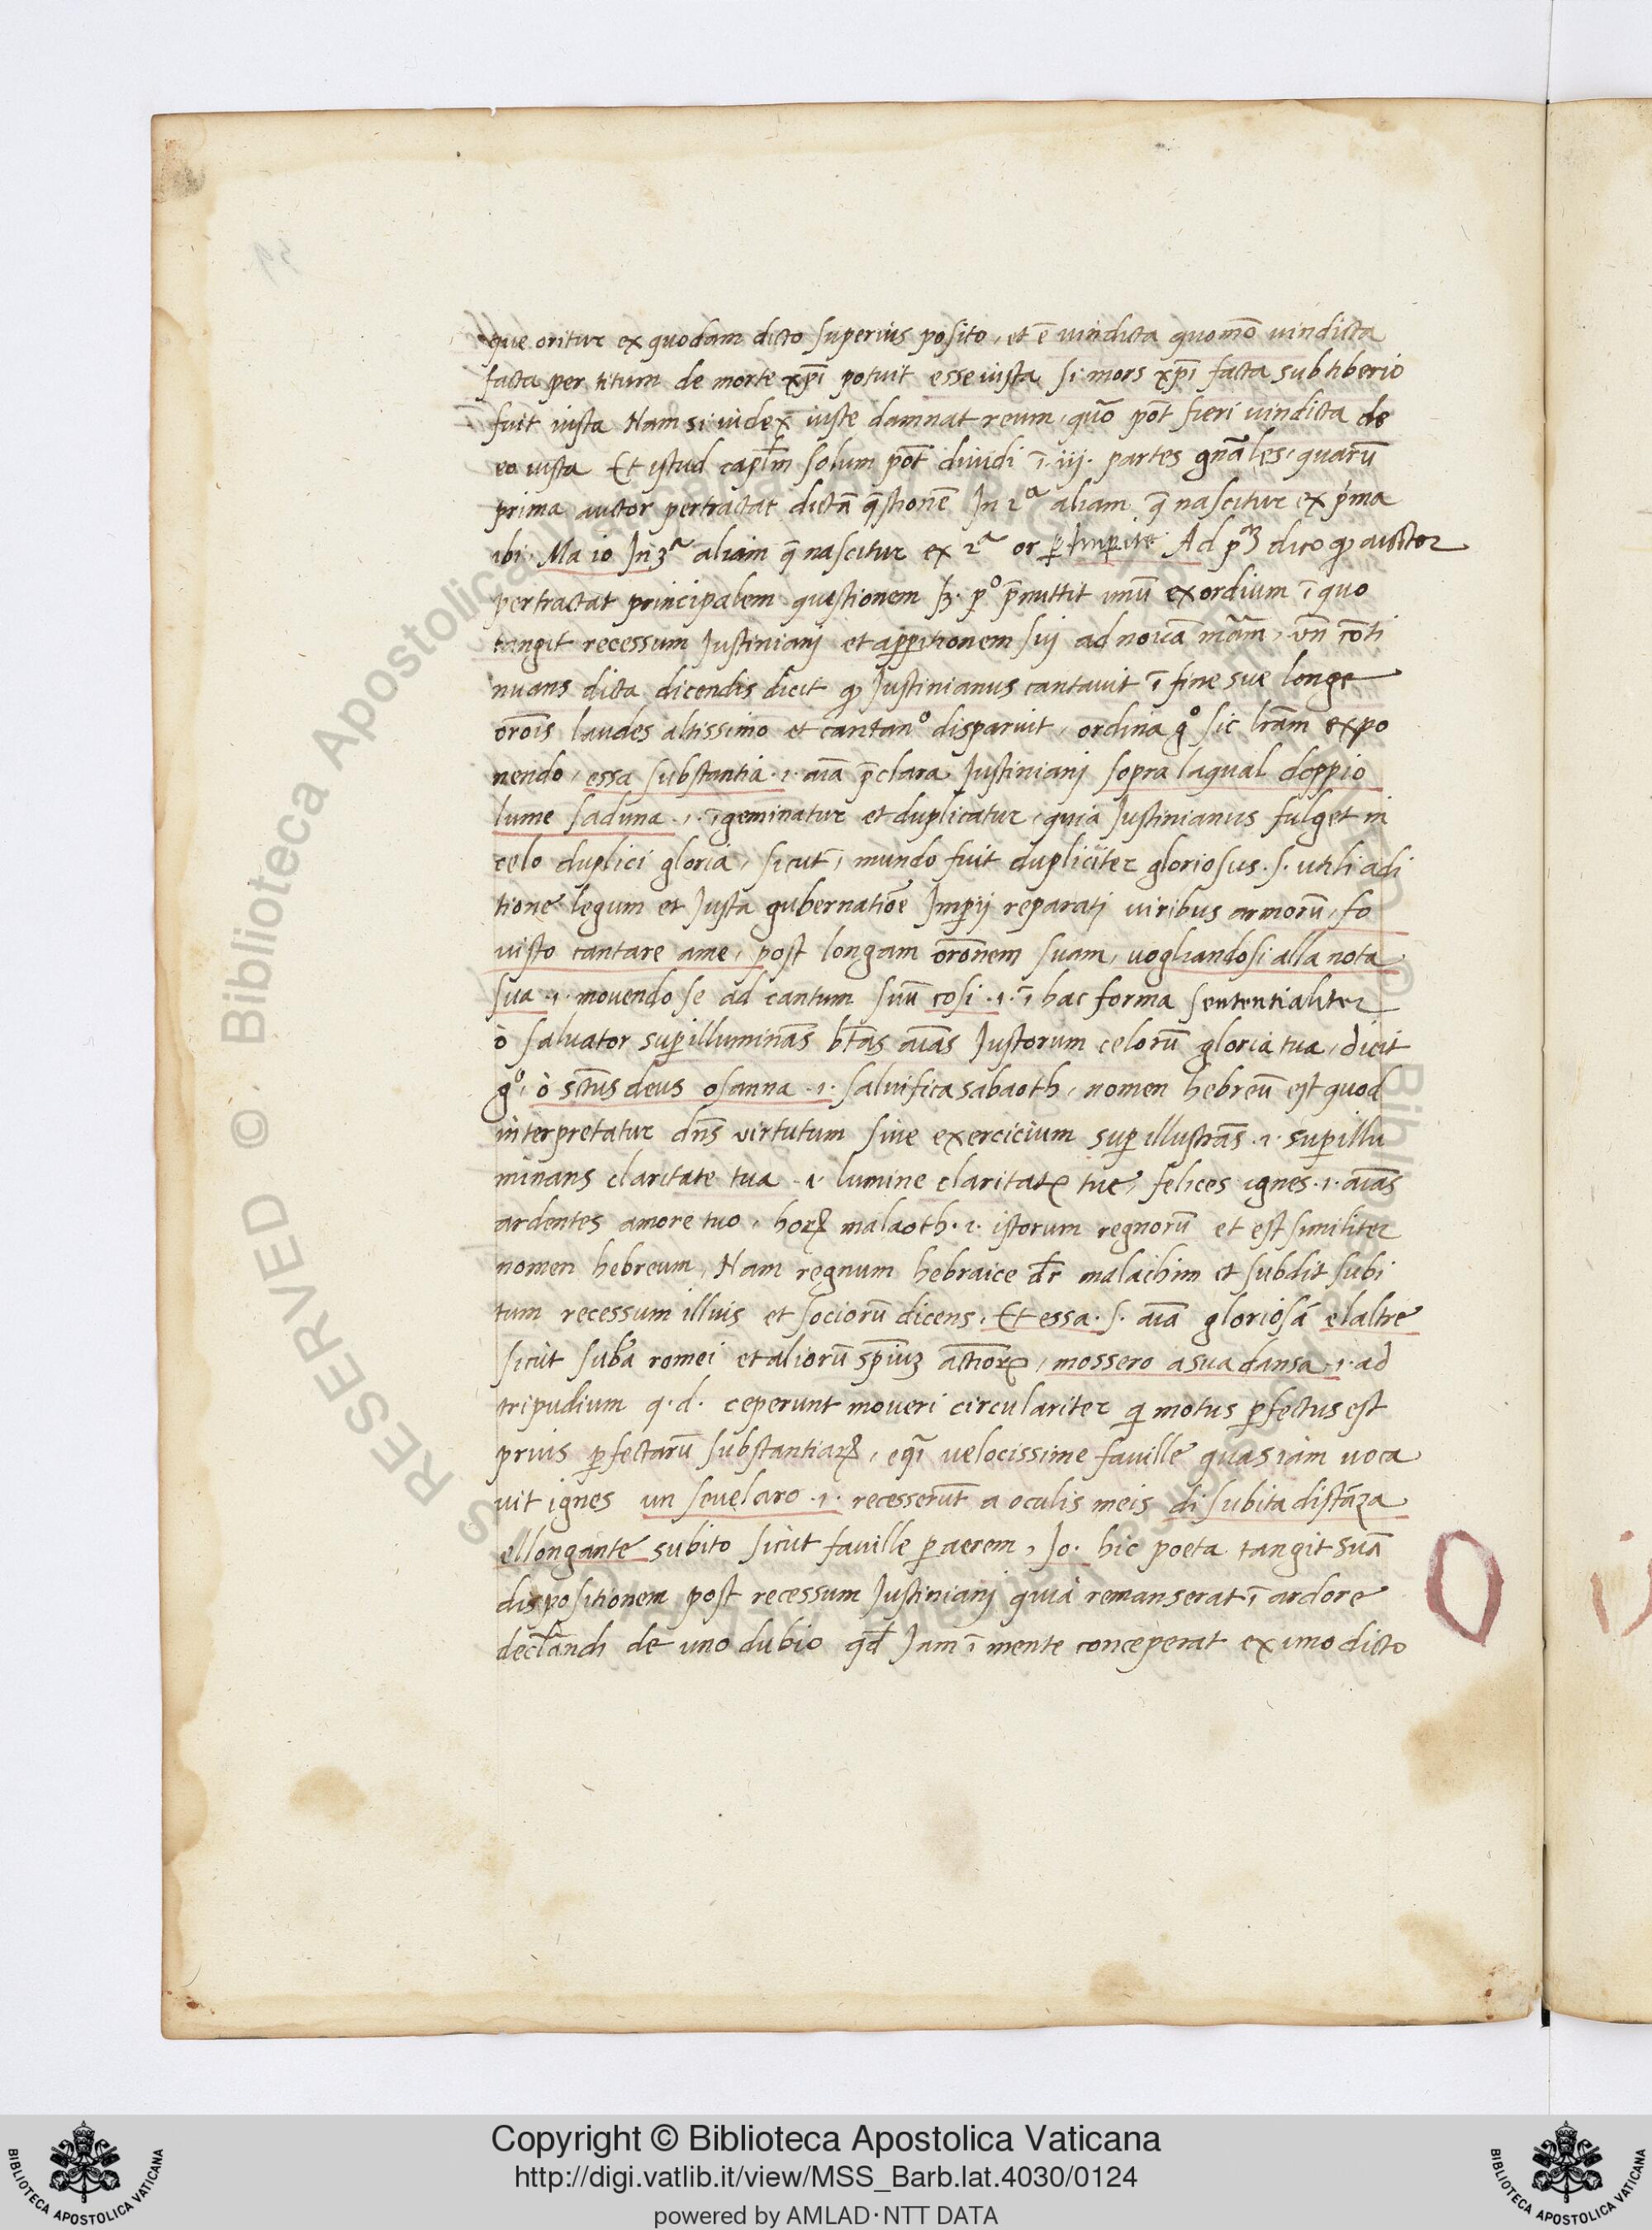 que oritur ex quodam dicto superius posito, et ē vindicta quomō vindicta
facta per titum de morte xp̄i potuit esse iusta si mors xp̄i facta sub tiberio
fuit iusta Nam si iudex iuste damnat reum, quō pōt fieri vindicta de
eo iusta Et istud cap̄lm solum pōt dividi ī .iij. partes gn̄ales, quarū
prima auctor pertractat dictā q̄stionē In 2ª aliam q̄ nascitur ex p̄ma
ibi. Ma io In 3ª aliam q̄ nascitur ex 2ª or Ad pᵃᵐ dico qꝫ auctor
pertractat principalem questionem sꝫ. pº p̄mittit unū exordium ī quo
tangit recessum Justiniani et app̄itionem sui ad novā mām, vn̄ cōti
nuans dicta dicendis dicit qꝫ Justinianus cantavit ī fine sue longe
orōis laudes altissimo et cantanº disparuit, ordina gº sic lrām expo
nendo, essa substantia .i. aīa p̄clara Justiniani sopra laqual doppio
lume saduna .i. īgeminatur et duplicatur, quia Justinianus fulget in
celo duplici gloria, sicut ī mundo fuit dupliciter gloriosus .s. utili adi
tione legum et Justa gubernatiōe Imp̄ij reparati viribus armorū, fo
visto cantare ame, post longam orōnem suam, vogliandosi alla nota
sua .i. movendo se ad cantum suū cosi .i. ī hac forma sententialiter
ò salvator sup̄illuminās btās aīas Justorum celorū gloria tua, dicit
gº, ò sctūs deus osanna .i. salvifica sabaoth, nomen hebreū est quod
interpretatur dn̄s virtutum sive exercicium sup̄ illustrās .i. sup̄illu
minans claritate tua .i. lumine claritatꝭ tue, felices ignes .i. aīas
ardentes amore tuo, hoꝝ malaoth .i. istorum regnorū et est similiter
nomen hebreum, Nam regnum hebraice dr̄ malachim et subdit subi
tum recessum illius et sociorū dicens, Et essa .s. aīa gloriosā elaltre
sicut romei et aliorū sp̄iuꝫ, mossero a sua dansa .i. ad
tripudium q.d. ceperunt moveri circulariter qi motus ꝑfectus est
prius ꝑfectarū substantiaꝝ, eq̄i velocissime faville quas iam voca
vit ignes .i. recesserūt a oculis meis di subita distāza
ellongante subito sicut faville ꝑ aerem, Io. hic poeta tangit suā
dispositionem post recessum Justiniani quia remanserat ī ardore
declārandi de uno dubio qd̄ Jam ī mente conceperat ex uno dicto
RESERVED © · Biblioteca Apostolica Vaticana
Copyright © Biblioteca Apostolica Vaticana
http://digi.vatlib.it/view/MSS_Barb.lat.4030/0124
powered by AMLAD·NTT DATA
BIBLIOTECA APOSTOLICA VATICANA
BIBLIOTECA APOSTOLICA VATICANA